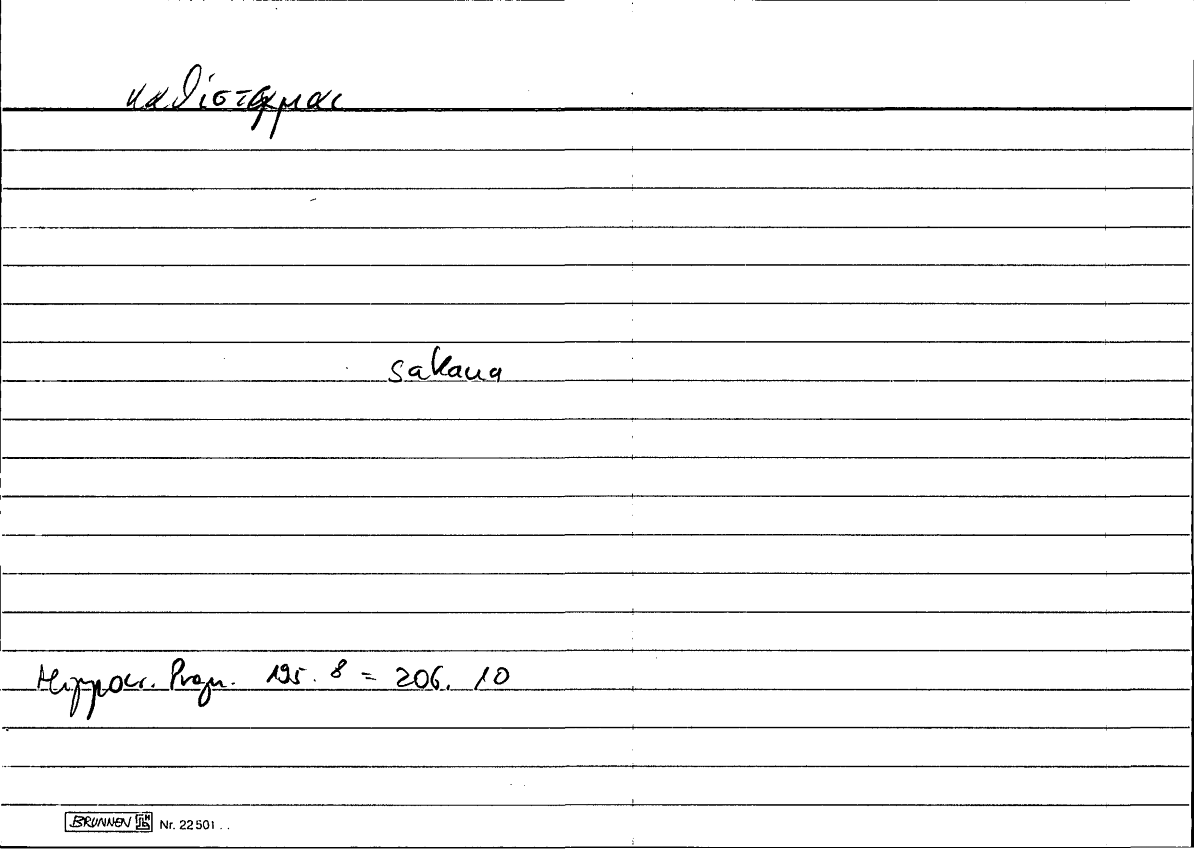 καθίσταμαι
sakana
Hippocr. Progn. 195. 8 = 206. 10
BRUNNEN Nr. 22501 . .